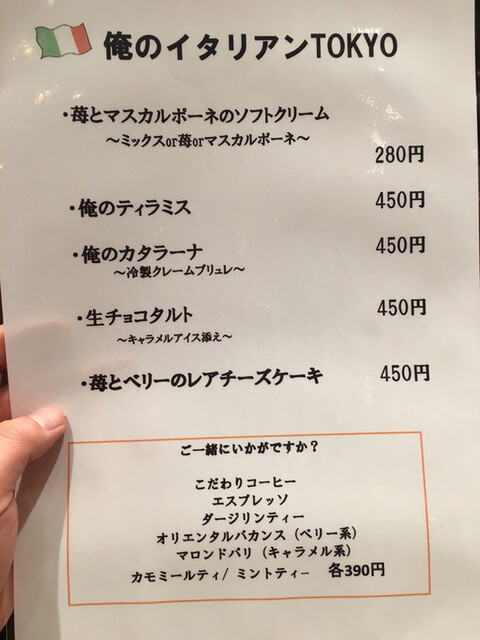 俺のイタリアンTOKYO
・苺とマスカルポーネのソフトクリーム
～ミックスor苺orマスカルポーネ～
280円
・俺のティラミス 450円
・俺のカタラーナ 450円
～冷製クレームブリュレ～
・生チョコタルト 450円
～キャラメルアイス添え～
・苺とベリーのレアチーズケーキ 450円
ご一緒にいかがですか？
こだわりコーヒー
エスプレッソ
ダージリンティー
オリエンタルバカンス（ベリー系）
マロンドパリ（キャラメル系）
カモミールティ/ ミントティ― 各390円